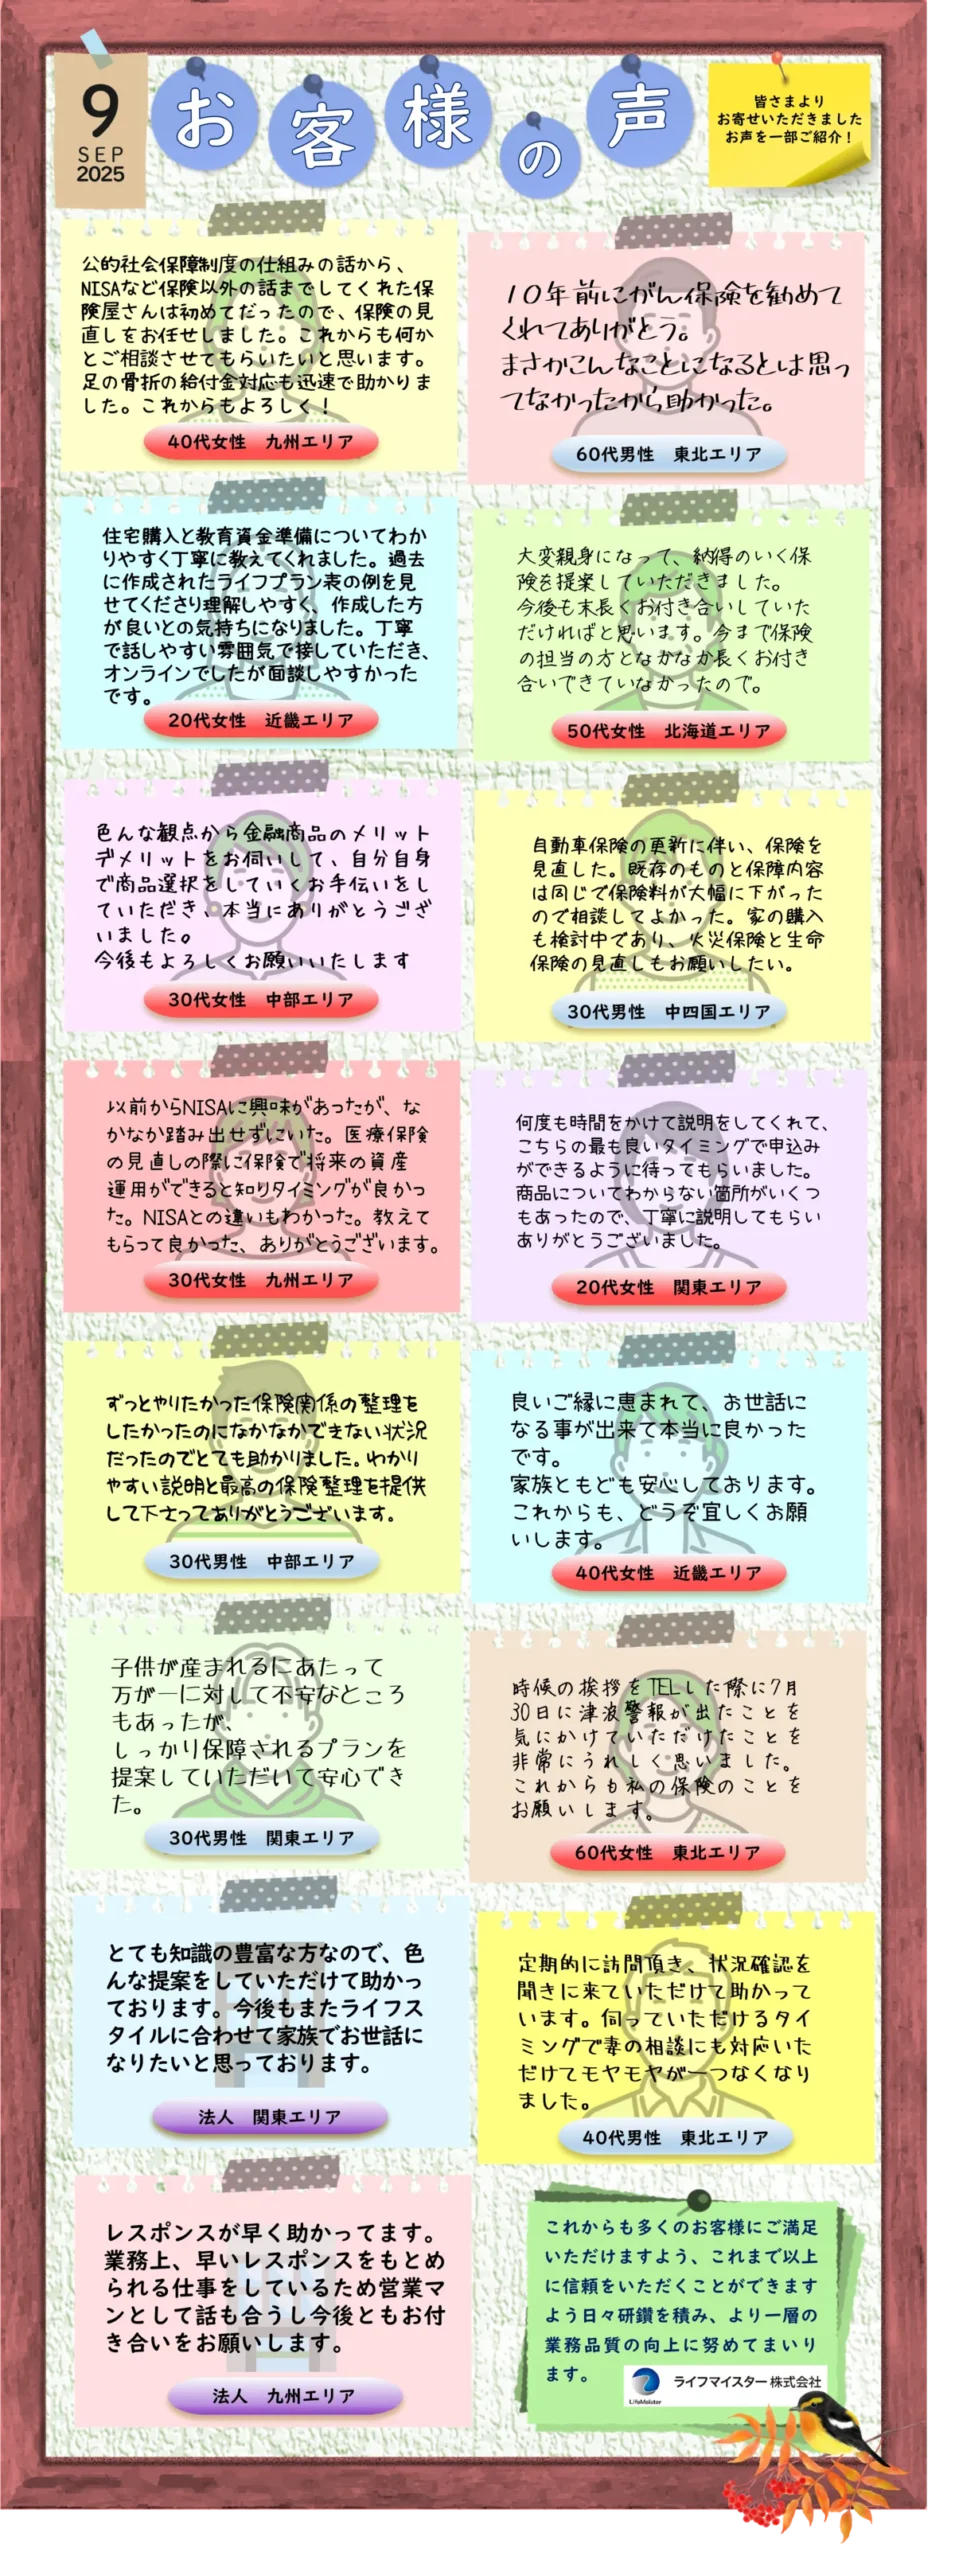 9
SEP
2025
お客様の声
皆さまより
お寄せいただきました
お声を一部ご紹介！
公的社会保障制度の仕組みの話から、
NISAなど保険以外の話までしてくれた保
険屋さんは初めてだったので、保険の見
直しをお任せしました。これからも何か
とご相談させてもらいたいと思います。
足の骨折の給付金対応も迅速で助かりま
した。これからもよろしく！
40代女性　九州エリア
１０年前にがん保険を勧めて
くれてありがとう。
まさかこんなことになるとは思っ
てなかったから助かった。
60代男性　東北エリア
住宅購入と教育資金準備についてわか
りやすく丁寧に教えてくれました。過去
に作成されたライフプラン表の例を見
せてくださり理解しやすく、作成した方
が良いとの気持ちになりました。丁寧
で話しやすい雰囲気で接していただき、
オンラインでしたが面談しやすかった
です。
20代女性　近畿エリア
大変親身になって、納得のいく保
険を提案していただきました。
今後も末長くお付き合いしていた
だければと思います。今まで保険
の担当の方となかなか長くお付き
合いできていなかったので。
50代女性　北海道エリア
色んな観点から金融商品のメリット
デメリットをお伺いして、自分自身
で商品選択をしていくお手伝いをし
ていただき、本当にありがとうござ
いました。
今後もよろしくお願いいたします
30代女性　中部エリア
自動車保険の更新に伴い、保険を
見直した。既存のものと保障内容
は同じで保険料が大幅に下がった
ので相談してよかった。家の購入
も検討中であり、火災保険と生命
保険の見直しもお願いしたい。
30代男性　中四国エリア
以前からNISAに興味があったが、な
かなか踏み出せずにいた。医療保険
の見直しの際に保険で将来の資産
運用ができると知りタイミングが良かっ
た。NISAとの違いもわかった。教えて
もらって良かった、ありがとうございます。
30代女性　九州エリア
何度も時間をかけて説明をしてくれて、
こちらの最も良いタイミングで申込み
ができるように待ってもらいました。
商品についてわからない箇所がいくつ
もあったので、丁寧に説明してもらい
ありがとうございました。
20代女性　関東エリア
ずっとやりたかった保険関係の整理を
したかったのになかなかできない状況
だったのでとても助かりました。わかり
やすい説明と最高の保険整理を提供
して下さってありがとうございます。
30代男性　中部エリア
良いご縁に恵まれて、お世話に
なる事が出来て本当に良かった
です。
家族ともども安心しております。
これからも、どうぞ宜しくお願
いします。
40代女性　近畿エリア
子供が産まれるにあたって
万が一に対して不安なところ
もあったが、
しっかり保障されるプランを
提案していただいて安心でき
た。
30代男性　関東エリア
時候の挨拶をTELした際に7月
30日に津波警報が出たことを
気にかけていただけたことを
非常にうれしく思いました。
これからも私の保険のことを
お願いします。
60代女性　東北エリア
とても知識の豊富な方なので、色
んな提案をしていただけて助かっ
ております。今後もまたライフス
タイルに合わせて家族でお世話に
なりたいと思っております。
法人　関東エリア
定期的に訪問頂き、状況確認を
聞きに来ていただけて助かって
います。伺っていただけるタイ
ミングで妻の相談にも対応いた
だけてモヤモヤが一つなくなり
ました。
40代男性　東北エリア
レスポンスが早く助かってます。
業務上、早いレスポンスをもとめ
られる仕事をしているため営業マ
ンとして話も合うし今後ともお付
き合いをお願いします。
法人　九州エリア
これからも多くのお客様にご満足
いただけますよう、これまで以上
に信頼をいただくことができます
よう日々研鑽を積み、より一層の
業務品質の向上に努めてまいり
ます。
ライフマイスター株式会社
LifeMeister